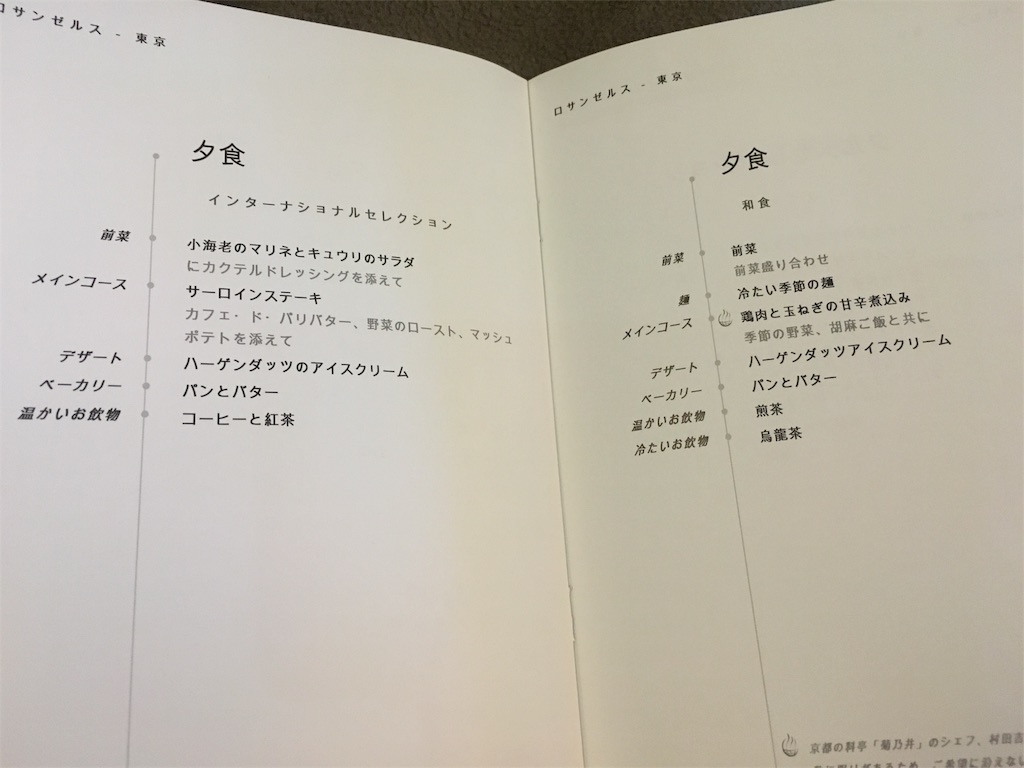 ロサンゼルス - 東京
夕食
インターナショナルセレクション
前菜
小海老のマリネとキュウリのサラダ
にカクテルドレッシングを添えて
メインコース
サーロインステーキ
カフェ・ド・パリバター、野菜のロースト、マッシュ
ポテトを添えて
デザート
ハーゲンダッツのアイスクリーム
ベーカリー
パンとバター
温かいお飲物
コーヒーと紅茶
ロサンゼルス - 東京
夕食
和食
前菜
前菜
前菜盛り合わせ
麺
冷たい季節の麺
メインコース
鶏肉と玉ねぎの甘辛煮込み
季節の野菜、胡麻ご飯と共に
デザート
ハーゲンダッツアイスクリーム
ベーカリー
パンとバター
温かいお飲物
煎茶
冷たいお飲物
烏龍茶
京都の料亭「菊乃井」のシェフ、村田吉
があるため、ご希望に沿えない